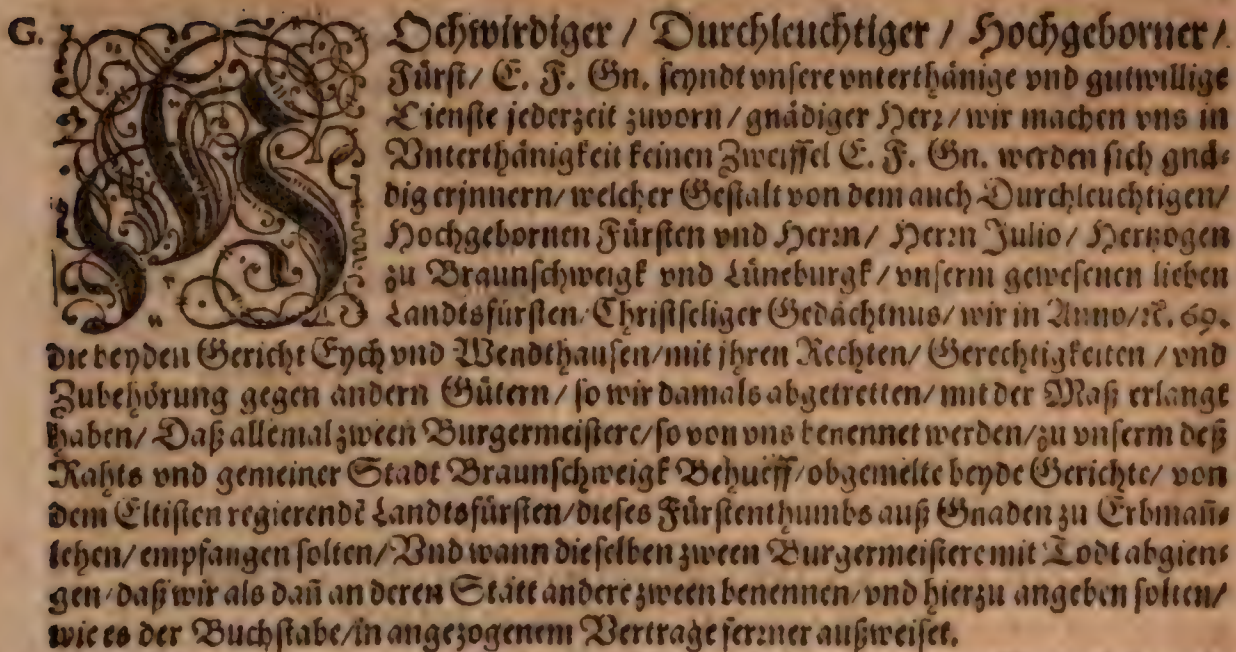 G. HOchwirdiger / Durchleuchtiger / Hochgeborner /
Fürst / E. F. Gn. seyndt vnsere vnterthänige vnd gutwillige
Dienste jederzeit zuvorn / gnädiger Herꝛ / wir machen vns in
Vnterthänigkeit keinen Zweiffel E. F. Gn. werden sich gnä⸗
dig erjnnern / welcher Gestalt von dem auch Durchleuchtigen /
Hochgebornen Fürsten vnd Herꝛn / Herꝛn Julio / Hertzogen
zu Braunschweigk vnd Lüneburgk / vnserm gewesenen lieben
Landtsfürsten / Christseliger Gedächtnus / wir in Anno / ꝛc. 69.
die beyden Gericht Eych vnd Wendthausen / mit jhren Rechten / Gerechtigkeiten / vnd
Zubehörung gegen andern Gütern / so wir damals abgetretten / mit der Maß erlangt
haben / Daß allemal zween Burgermeistere / so von vns benennet werden / zu vnserm deß
Rahts vnd gemeiner Stadt Braunschweigk Behueff / obgemelte beyde Gerichte / von
dem Eltisten regierendẽ Landtsfürsten / dieses Fürstenthumbs auß Gnaden zu Erbmañ⸗
lehen / empfangen solten / Vnd wann dieselben zween Burgermeistere mit Todt abgien⸗
gen / daß wir als dañ an deren Statt andere zween benennen / vnd hierzu angeben solten /
wie es der Buchstabe / in angezogenem Vertrage ferꝛner außweiset.